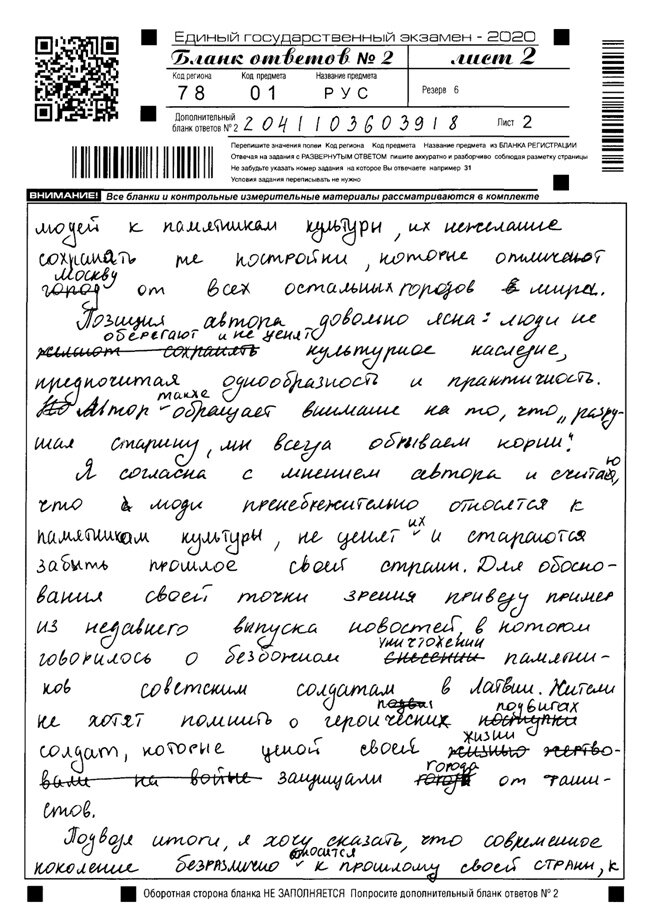 Единый государственный экзамен - 2020
Бланк ответов № 2 лист 2
Код региона Код предмета Название предмета
78 01 РУС Резерв 6
Дополнительный
бланк ответов № 2 2041103603918 Лист 2
Перепишите значения полей Код региона Код предмета Название предмета из БЛАНКА РЕГИСТРАЦИИ
Отвечая на задания с РАЗВЕРНУТЫМ ОТВЕТОМ пишите аккуратно и разборчиво соблюдая разметку страницы
Не забудьте указать номер задания на которое Вы отвечаете например 31
Условия задания переписывать не нужно
ВНИМАНИЕ! Все бланки и контрольные измерительные материалы рассматриваются в комплекте
людей к памятникам культуры, их нежелание
сохранять те постройки, которые отличают
Москву
город от всех остальных городов в мира.
Позиция автора довольно ясна: люди не
оберегают и не ценят
желают сохранять культурное наследие,
предпочитая однообразность и практичность.
также
Но Автор обращает внимание на то, что „разру-
шая старину, мы всегда обрываем корни".
Я согласна с мнением автора и считаю,
что люди пренебрежительно относятся к
памятникам культуры, не ценят их и стараются
забыть прошлое своей страны. Для обосно-
вания своей точки зрения приведу пример
из недавнего выпуска новостей, в котором
уничтожении
говорилось о безбожном снесении памятни-
ков советским солдатам в Латвии. Жители
подвигах
не хотят помнить о героических поступки
жизни
солдат, которые ценой своей жизнью жертво-
города
вали на войне защищали от фаши-
стов.
Подводя итоги, я хочу сказать, что современное
относится
поколение безразлично к прошлому своей страны, к
Оборотная сторона бланка НЕ ЗАПОЛНЯЕТСЯ Попросите дополнительный бланк ответов № 2